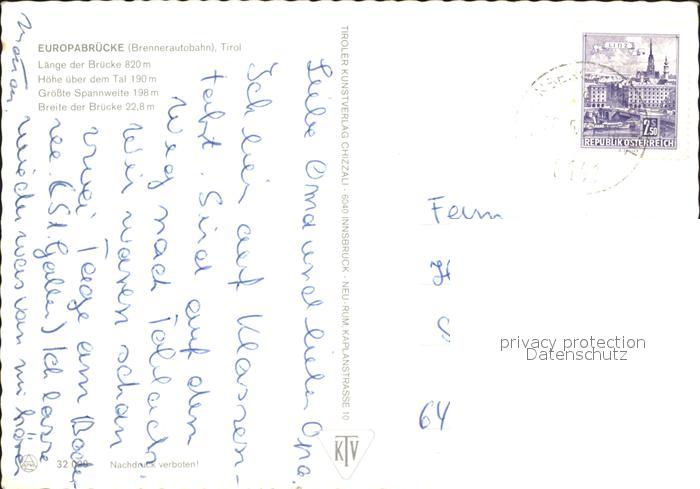 EUROPABRÜCKE (Brennerautobahn), Tirol
Länge der Brücke 820 m
Höhe über dem Tal 190 m
Größte Spannweite 198 m
Breite der Brücke 22,8 m
Liebe Oma und lieber Opa.
Ich bin auf Klassen-
fahrt. Sind auf dem
Weg nach Toblach.
Wir waren schon
zwei Tage am Boden-
see (St. Gallen) Ich lasse
wieder was von mir hören
32 098 Nachdruck verboten!
TIROLER KUNSTVERLAG CHIZZALI · 6040 INNSBRUCK - NEU-RUM, KAPLANSTRASSE 10
KTV
LINZ
2 S 50
REPUBLIK ÖSTERREICH
Fam
64
privacy protection
Datenschutz